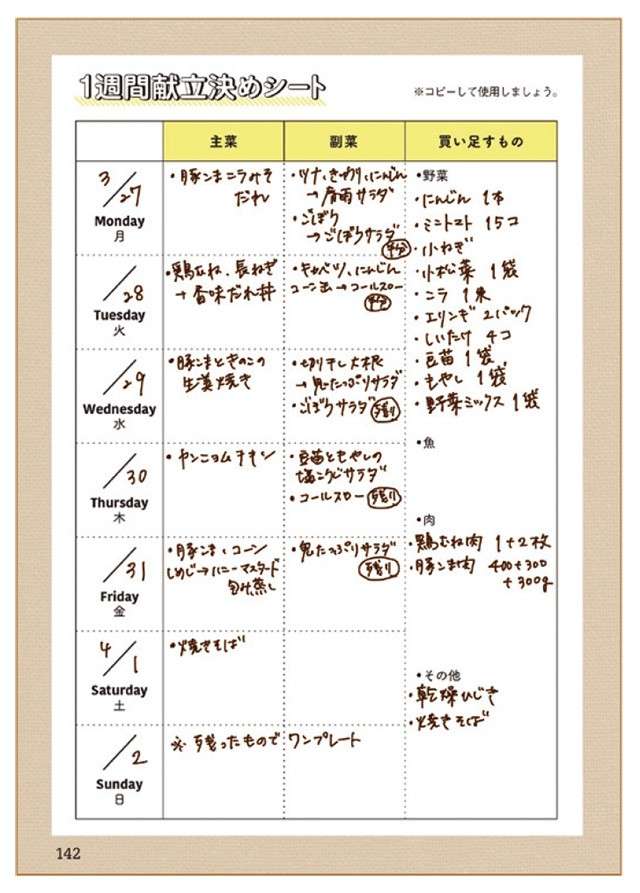 1週間献立決めシート
※コピーして使用しましょう。
主菜 副菜 買い足すもの
3/27
Monday
月
・豚こま ニラみそ
だれ
・ツナ、きゅうり、にんじん
→ 春雨サラダ
・ごぼう
→ ごぼうサラダ
半分
/28
Tuesday
火
・鶏むね、長ねぎ
→ 香味だれ丼
・キャベツ、にんじん
コーン缶 → コールスロー
半分
/29
Wednesday
水
・豚こまときのこの
生姜焼き
・切り干し大根
→ たっぷりサラダ
・ごぼうサラダ 残り
/30
Thursday
木
・ヤンニョムチキン
・豆苗ともやしの
塩こうじサラダ
・コールスロー 残り
/31
Friday
金
・豚こま、コーン
しめじ→ハニーマスタード
包み蒸し
・たっぷりサラダ
残り
4/1
Saturday
土
・焼きそば
/2
Sunday
日
※ 残ったもので ワンプレート
・野菜
・にんじん 1本
・ミニトマト 15コ
・小ねぎ
・小松菜 1袋
・ニラ 1束
・エリンギ 2パック
・しいたけ 4コ
・豆苗 1袋
・もやし 1袋
・野菜ミックス 1袋
・魚
・肉
・鶏むね肉 1+2枚
・豚こま肉 400+300
+300g
・その他
・乾燥ひじき
・焼きそば
142